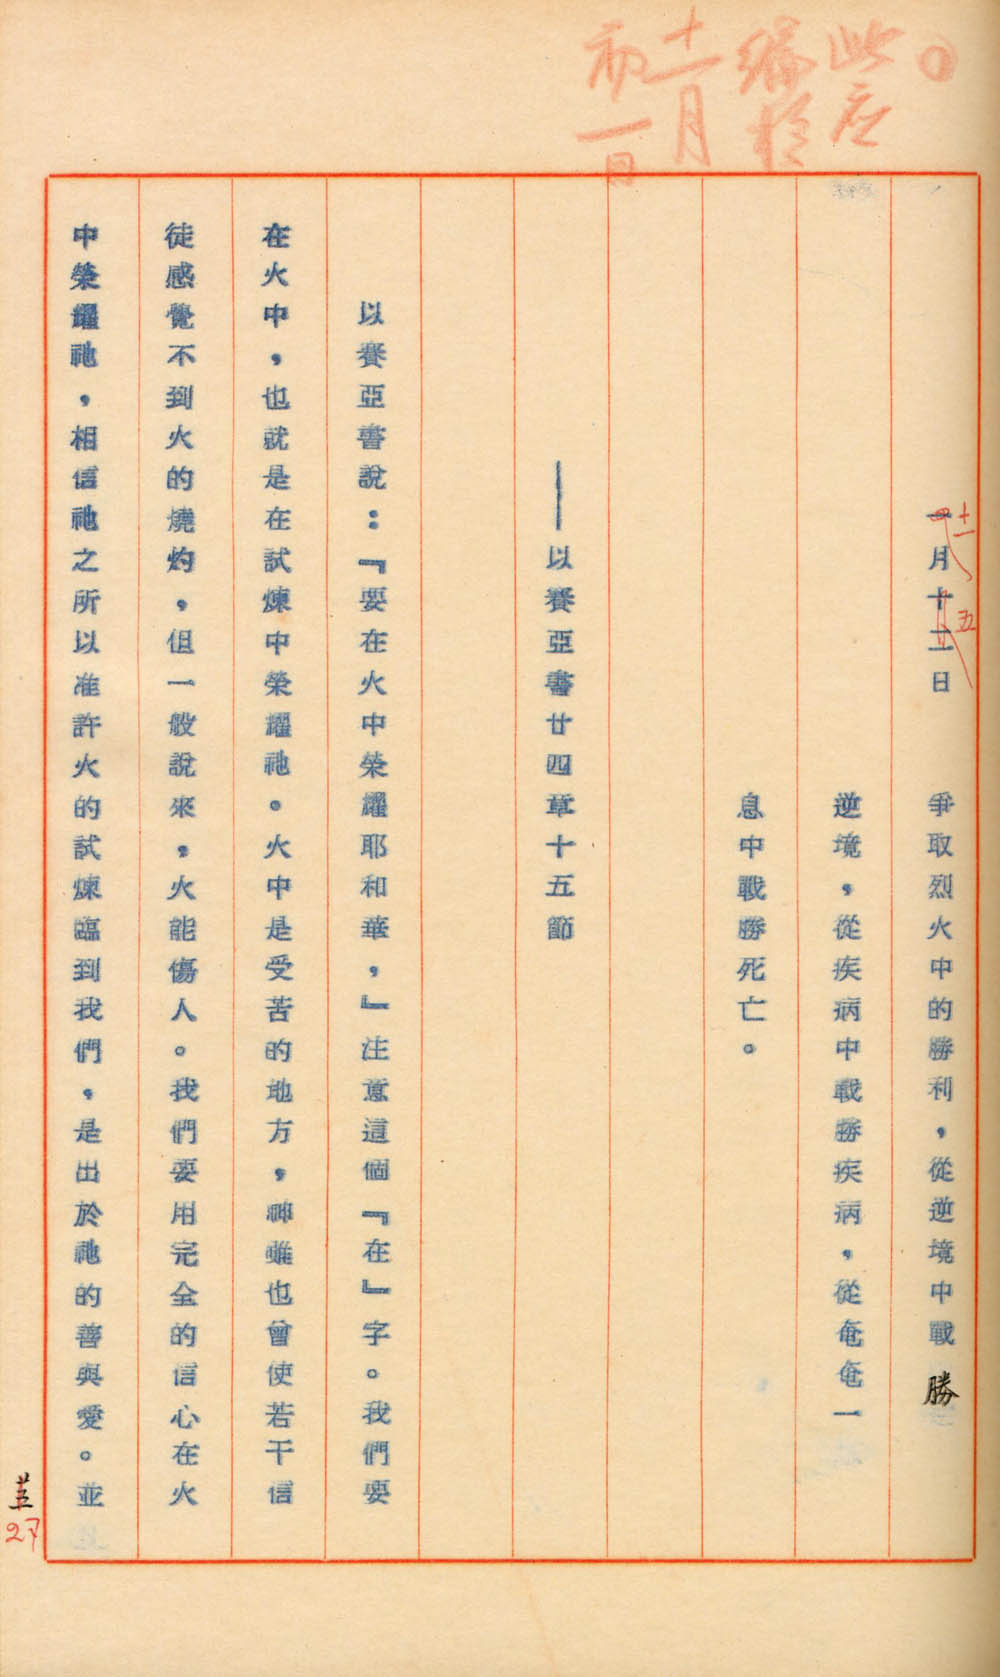 此应
編於
十一月
一日
一月十二日　爭取烈火中的勝利，從逆境中戰勝
十一
五
逆境，從疾病中戰勝疾病，從奄奄一
息中戰勝死亡。
——以賽亞書廿四章十五節
以賽亞書說：『要在火中榮耀耶和華，』注意這個『在』字。我們要
在火中，也就是在試煉中榮耀祂。火中是受苦的地方，神雖也曾使若干信
徒感覺不到火的燒灼，但一般說來，火能傷人。我們要用完全的信心在火
中榮耀祂，相信祂之所以准許火的試煉臨到我們，是出於祂的善與愛。並
27